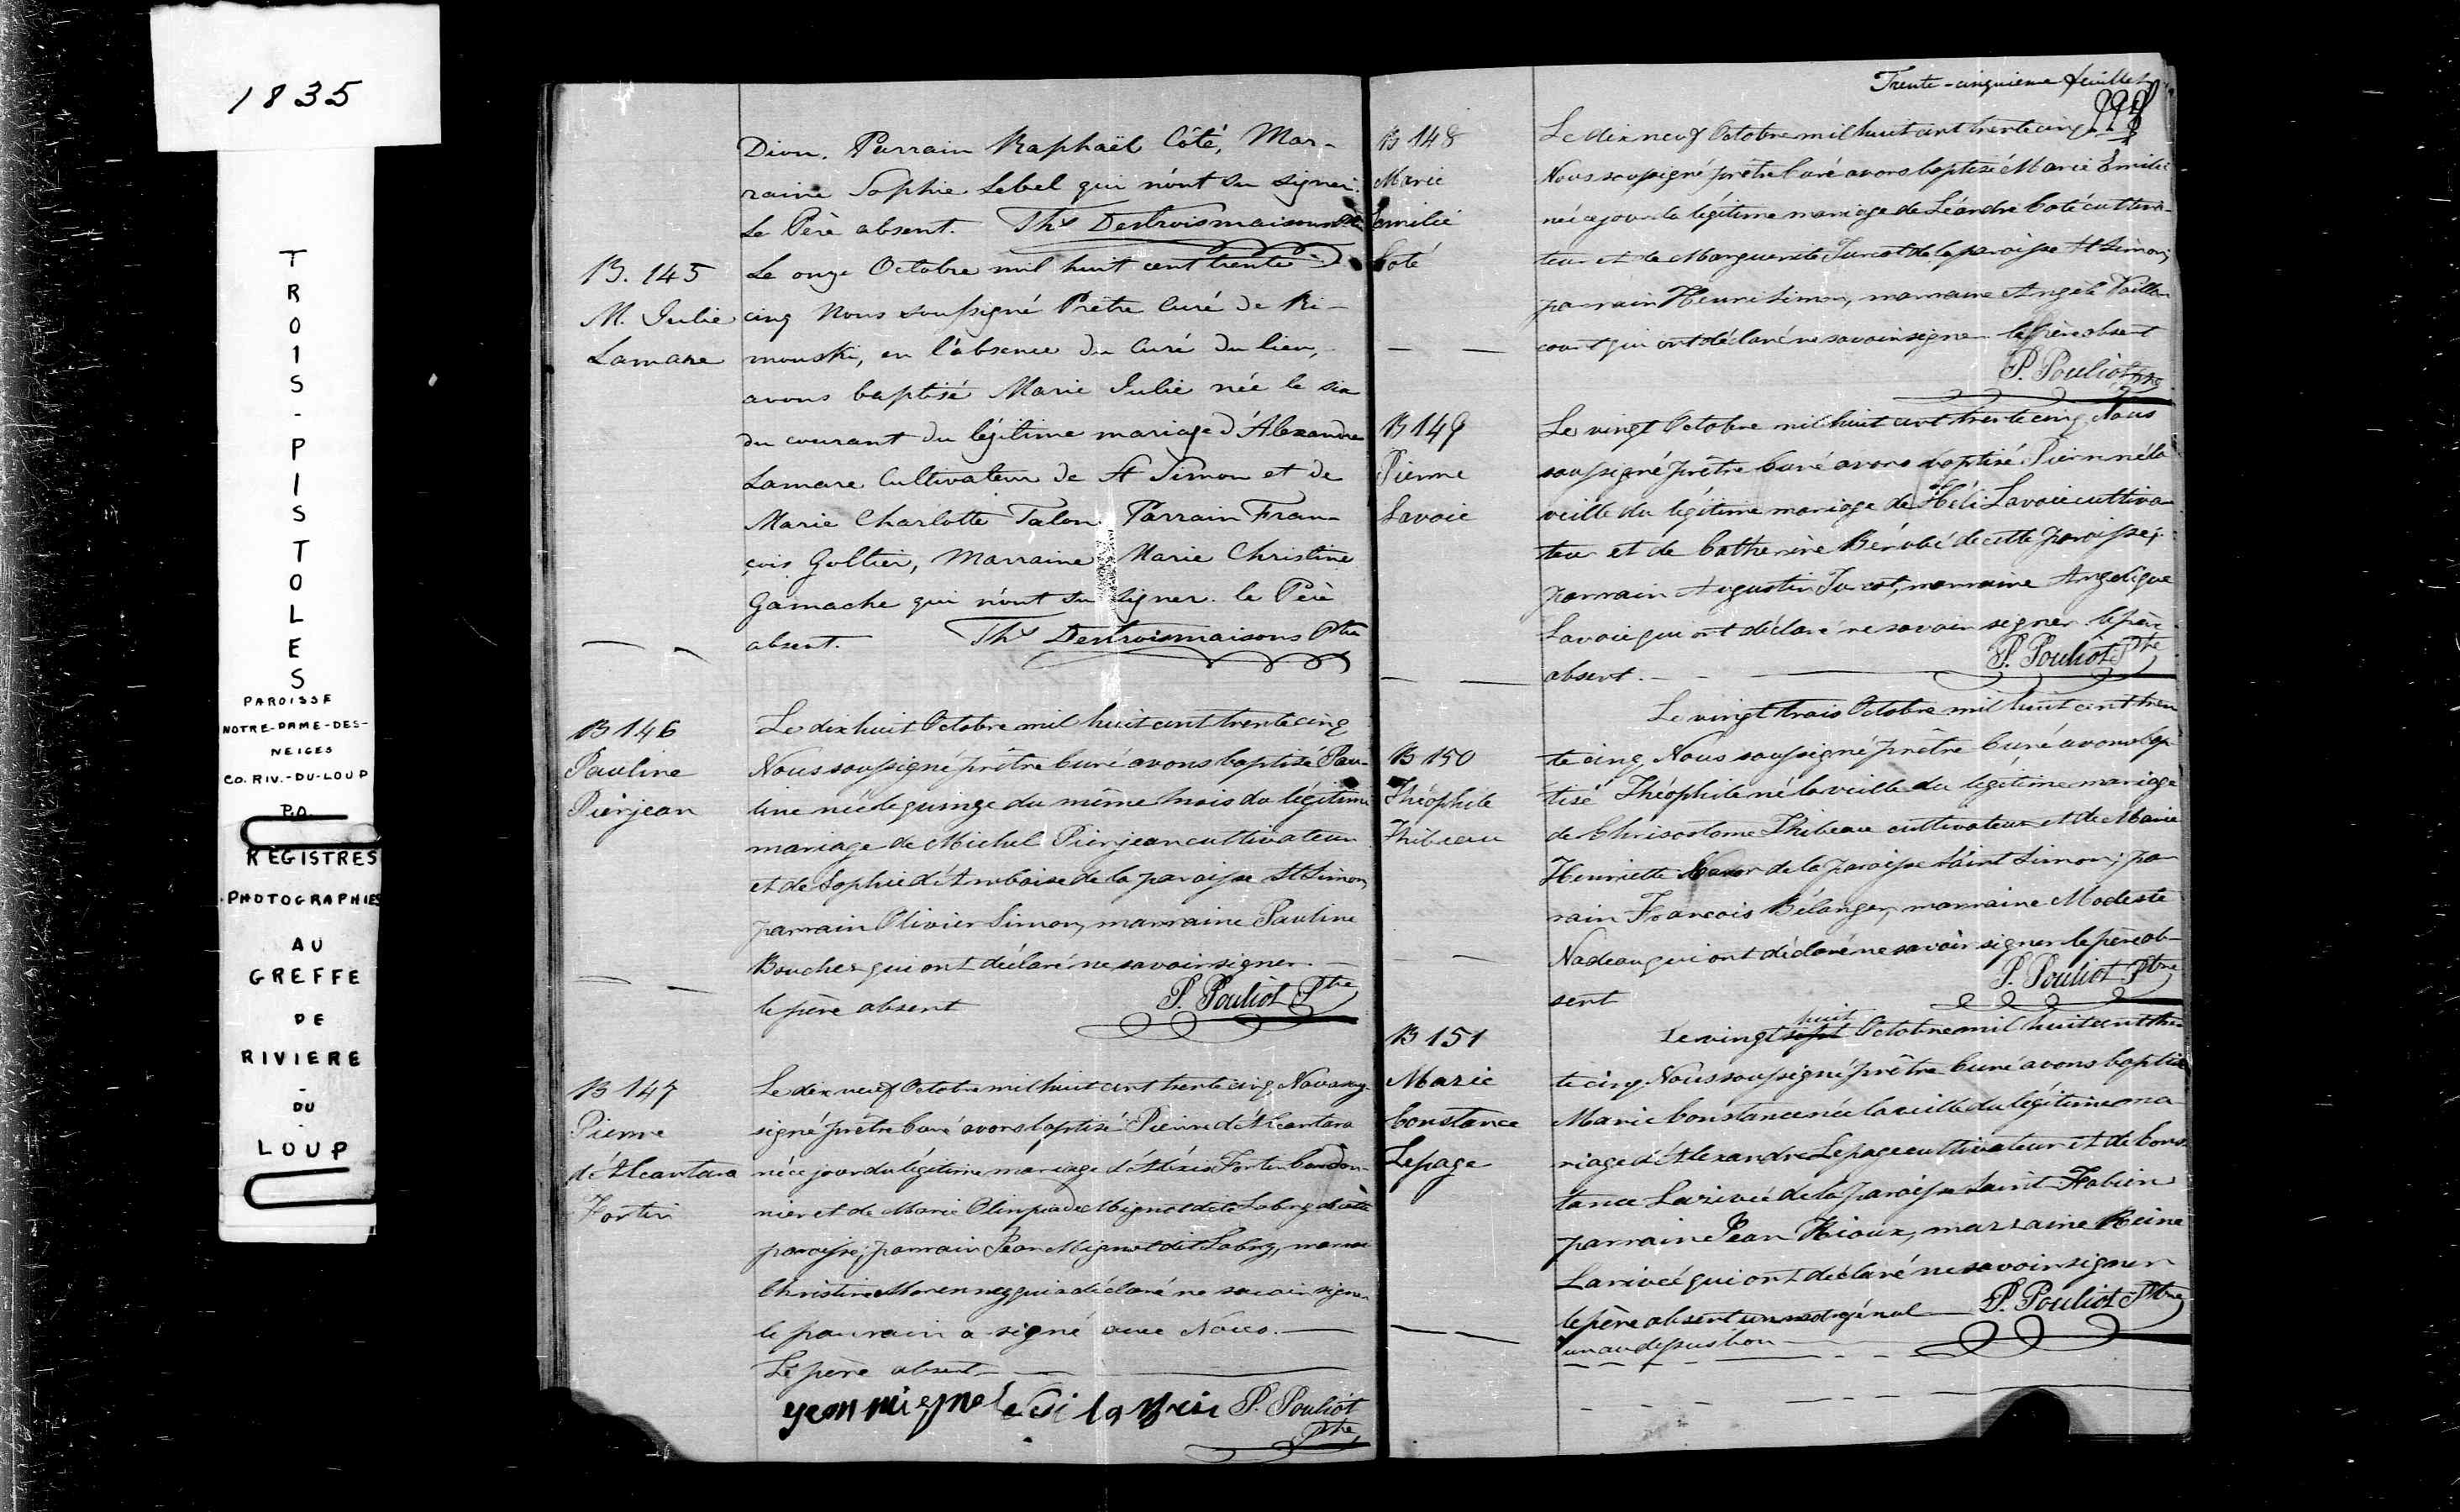 1835
TROIS-PISTOLES
PAROISSE
NOTRE-DAME-DES-
NEIGES
CO. RIV.-DU-LOUP
P.Q.
REGISTRES
PHOTOGRAPHIES
AU
GREFFE
DE
RIVIERE
-
DU
-
LOUP
Dion. Parrain Raphaël Côté, Mar-
raine Sophie Lebel qui n'ont su signer.
Le Père absent. Ths Destroismaisons Ptre
B. 145
M. Julie
Lamare
Le onze Octobre mil huit cent trente
cinq Nous soussigné Prêtre Curé de Ri-
mouski, en l'absence du Curé du lieu,
avons baptisé Marie Julie née le six
du courant du légitime mariage d'Alexandre
Lamare Cultivateur de St Simon et de
Marie Charlotte Talon. Parrain Fran-
çois Goltier, Marraine Marie Christine
Gamache qui n'ont su signer. le Père
absent. Ths Destroismaisons Ptre
B 146
Pauline
Pierjean
Le dix huit Octobre mil huit cent trente cinq
Nous soussigné prêtre Curé avons baptisé Pau-
line née le quinze du même mois du légitime
mariage de Michel Pierjean cultivateur
et de Sophie d'Amboise de la paroisse St Simon,
parrain Olivier Simon, marraine Pauline
Boucher qui ont déclaré ne savoir signer. -
le père absent P. Pouliot Ptre
B 147
Pierre
d'Alcantara
Fortin
Le dix neuf Octobre mil huit cent trente cinq Nous sous-
signé prêtre Curé avons baptisé Pierre d'Alcantara
né ce jour du légitime mariage d'Alexis Fortin Cordon-
nier et de Marie Olimpiade Mignot dit Labry de cette
paroisse; parrain Jean Mignot dit Labry, marraine
Christine Morenney qui a déclaré ne savoir signer
le parrain a signé avec Nous. -
Le père absent -
jean mignot P. Pouliot
Ptre
Trente-cinquieme feuillet
B 148
Marie
Emilie
Coté
Le dix neuf Octobre mil huit cent trente cinq
Nous soussigné prêtre Curé avons baptisé Marie Emilie
née ce jour du légitime mariage de Léandre Coté cultiva-
teur et de Marguerite Turcot de la paroisse St Simon;
parrain Henri Simon, marraine Angele Vaillan-
court qui ont déclaré ne savoir signer le père absent
P. Pouliot Ptre
B 149
Pierre
Lavoie
Le vingt Octobre mil huit cent trente cinq Nous
soussigné prêtre Curé avons baptisé Pierre né la
veille du légitime mariage de Héli Lavoie cultiva-
teur et de Catherine Bérubé de cette paroisse;
parrain Augustin Turcot, marraine Angelique
Lavoie qui ont déclaré ne savoir signer le père
absent. - P. Pouliot Ptre
B 150
Théophile
Thibeau
Le vingt trois Octobre mil huit cent tren
te cinq Nous soussigné prêtre Curé avons bap-
tisé Théophile né la veille du légitime mariage
de Chrisostome Thibeau cultivateur et de Marie
Henriette de la paroisse Saint Simon; par-
rain François Bélanger, marraine Modeste
Nadeau qui ont déclaré ne savoir signer le père ab-
sent P. Pouliot Ptre
B 151
Marie
Constance
Lepage
huit
Le vingt sept Octobre mil huit cent tren
te cinq Nous soussigné prêtre Curé avons baptisé
Marie Constance née la veille du légitime ma
riage d'Alexandre Lepage cultivateur et de Cons-
tance Larivée de la paroisse Saint Fabien
parrain Jean Rioux, marraine Reine
Larivée qui ont déclaré ne savoir signer
le père absent un mot rayé nul P. Pouliot Ptre
un au dessus bon